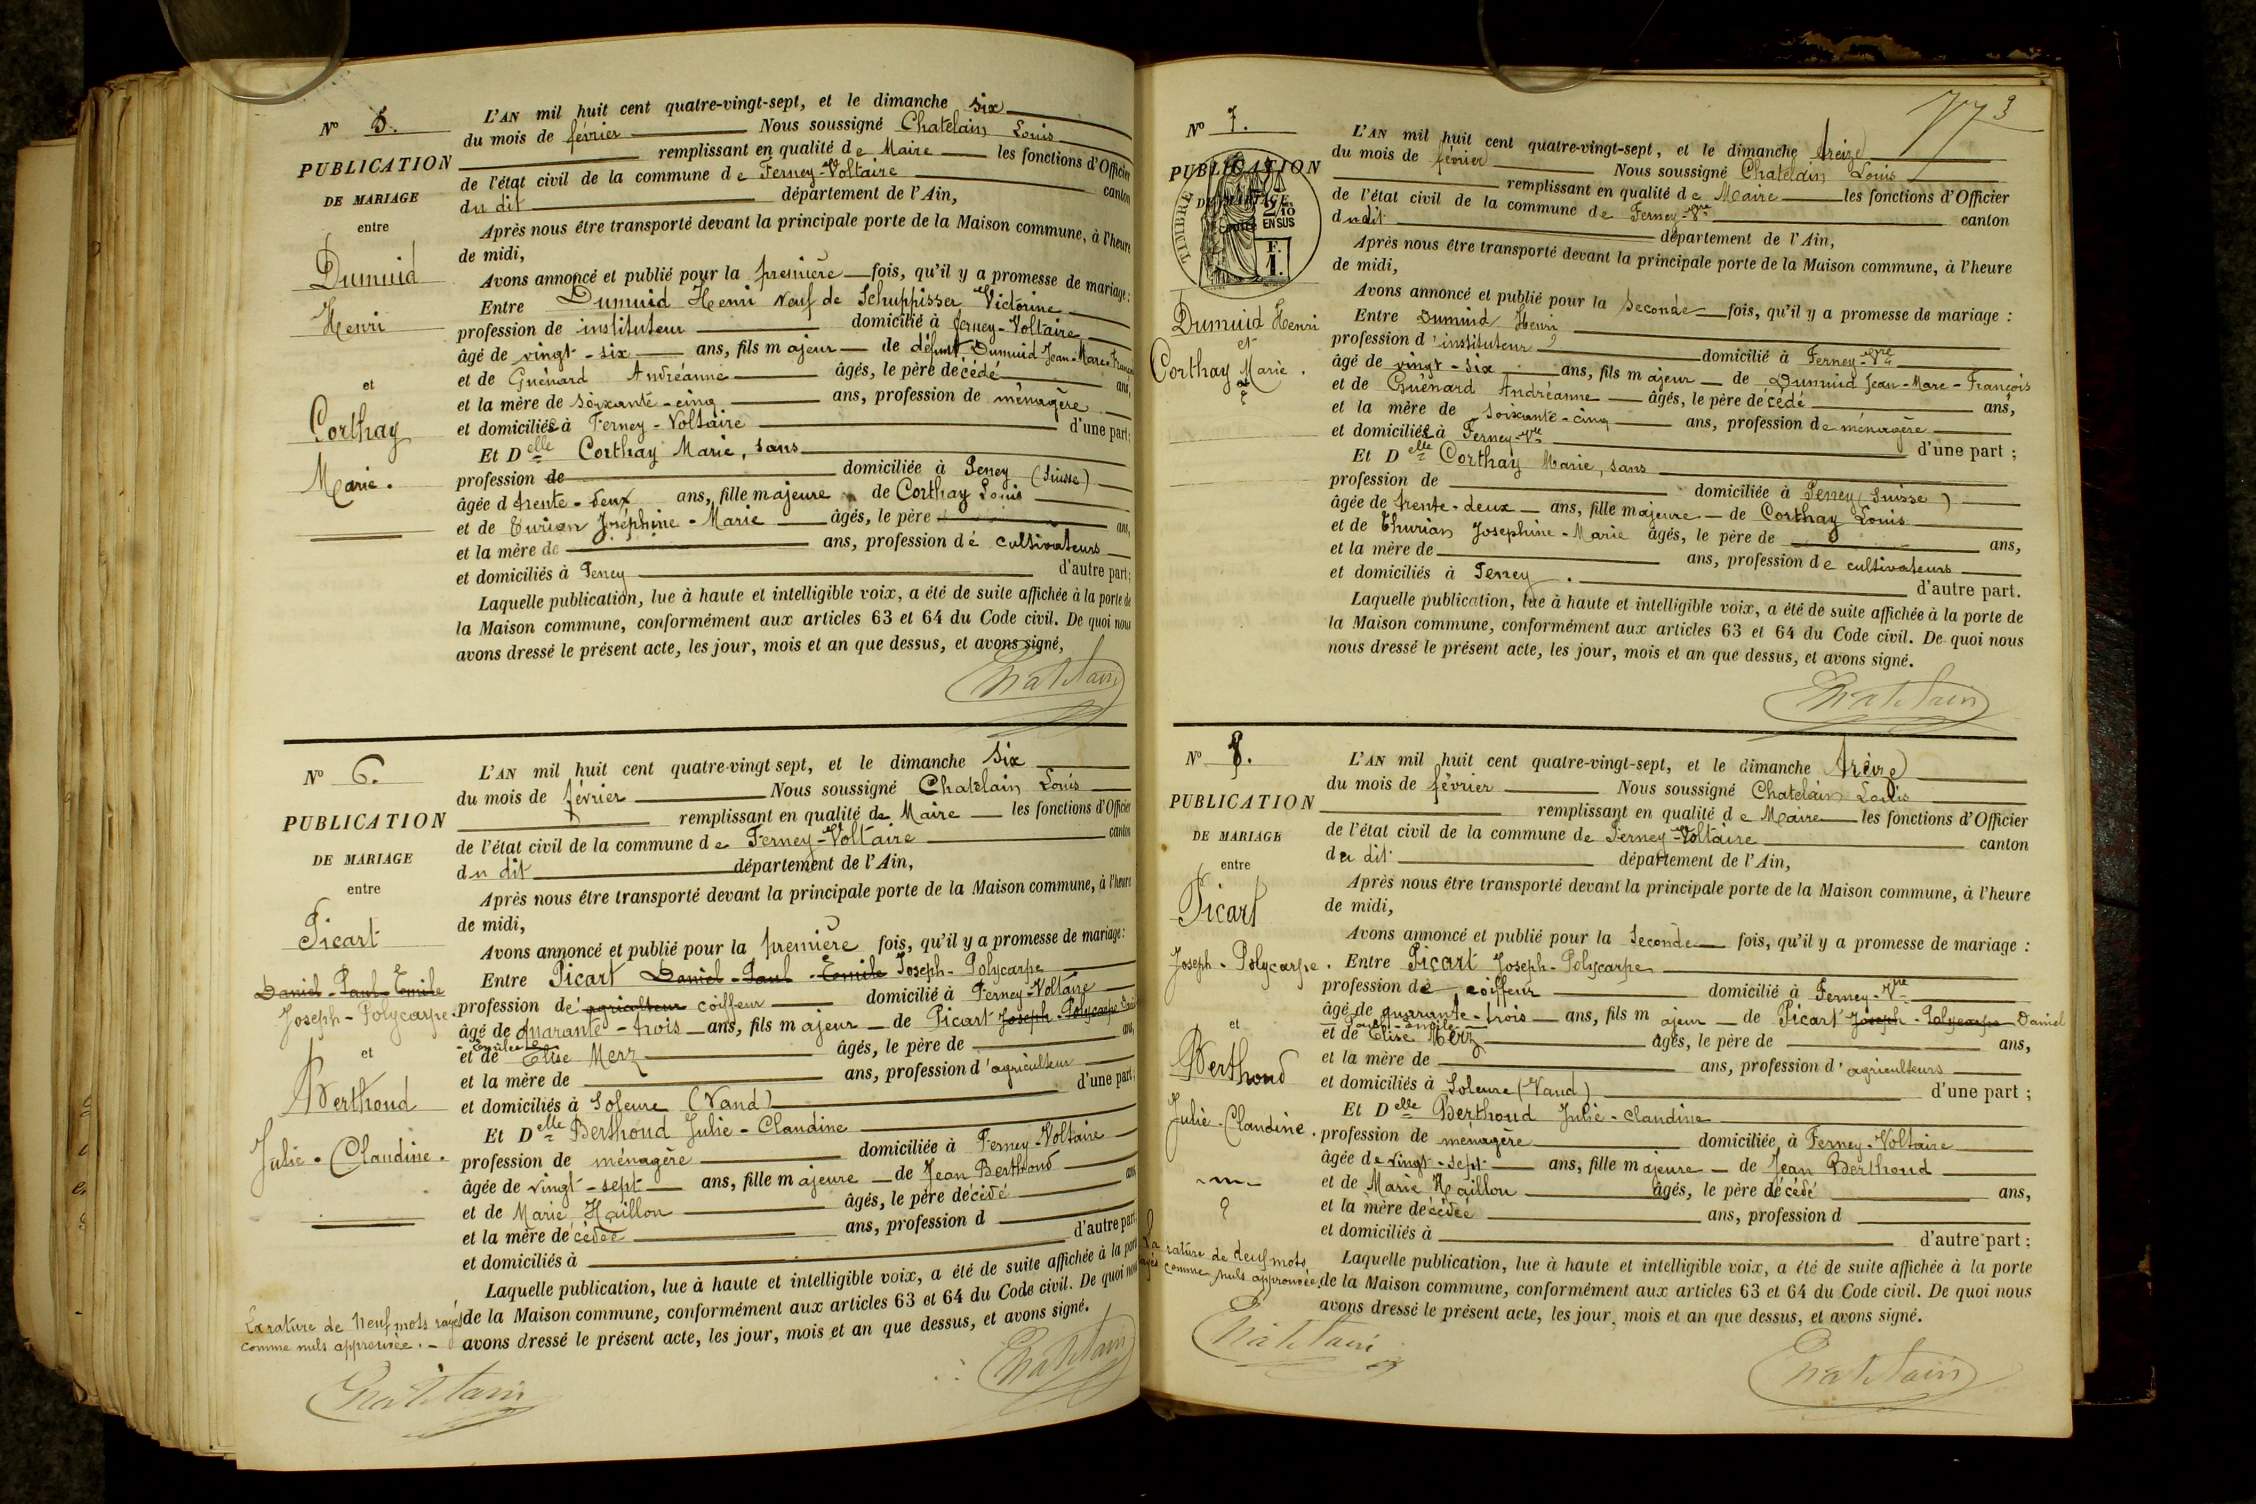 N° 5.
PUBLICATION
DE MARIAGE
entre
Dumuid
Henri
et
Corthay
Marie.
L'AN mil huit cent quatre-vingt-sept, et le dimanche six
du mois de février Nous soussigné Chatelain Louis
remplissant en qualité de Maire les fonctions d'Officier
de l'état civil de la commune de Ferney-Voltaire canton
du dit département de l'Ain,
Après nous être transporté devant la principale porte de la Maison commune, à l'heure
de midi,
Avons annoncé et publié pour la première fois, qu'il y a promesse de mariage :
Entre Dumuid Henri veuf de Schuppisser Victorine
profession de instituteur domicilié à Ferney-Voltaire
âgé de vingt-six ans, fils majeur de défunt Dumuid Jean-Marc-François
et de Guénard Andréanne âgés, le père décédé ans,
et la mère de soixante-cinq ans, profession de ménagère
et domiciliés à Ferney-Voltaire d'une part ;
Et Delle Corthay Marie, sans
profession de domiciliée à Peney (Suisse)
âgée d trente-deux ans, fille majeure de Corthay Louis
et de Turian Joséphine-Marie âgés, le père ans,
et la mère de ans, profession de cultivateurs
et domiciliés à Peney d'autre part ;
Laquelle publication, lue à haute et intelligible voix, a été de suite affichée à la porte de
la Maison commune, conformément aux articles 63 et 64 du Code civil. De quoi nous
avons dressé le présent acte, les jour, mois et an que dessus, et avons signé,
Chatelain
N° 6.
PUBLICATION
DE MARIAGE
entre
Picart
Daniel-Paul-Emile
Joseph-Polycarpe.
et
Berthoud
Julie-Claudine.
La rature de neuf mots rayés
comme nuls approuvée.-
Chatelain
L'AN mil huit cent quatre-vingt sept, et le dimanche six
du mois de février Nous soussigné Chatelain Louis
remplissant en qualité de Maire les fonctions d'Officier
de l'état civil de la commune de Ferney-Voltaire canton
du dit département de l'Ain,
Après nous être transporté devant la principale porte de la Maison commune, à l'heure
de midi,
Avons annoncé et publié pour la première fois, qu'il y a promesse de mariage :
Entre Picart Daniel-Paul-Emile Joseph-Polycarpe
profession de agriculteur coiffeur domicilié à Ferney-Voltaire
âgé de quarante-trois ans, fils majeur de Picart Joseph-Polycarpe
et de Elise Merz âgés, le père de ans,
et la mère de ans, profession d'agriculteur
et domiciliés à Soleure (Vaud) d'une part ;
Et Delle Berthoud Julie-Claudine
profession de ménagère domiciliée à Ferney-Voltaire
âgée de vingt-sept ans, fille majeure de Jean Berthoud
et de Marie Haillon âgés, le père décédé ans
et la mère décédée ans, profession d
et domiciliés à d'autre part
Laquelle publication, lue à haute et intelligible voix, a été de suite affichée à la porte
de la Maison commune, conformément aux articles 63 et 64 du Code civil. De quoi nous
avons dressé le présent acte, les jour, mois et an que dessus, et avons signé.
Chatelain
N° 7.
PUBLICATION
DE MARIAGE
entre
TIMBRE
2/10
EN SUS
F.
1.
Dumuid Henri
et
Corthay Marie.
L'AN mil huit cent quatre-vingt-sept, et le dimanche treize
du mois de février Nous soussigné Chatelain Louis
remplissant en qualité de Maire les fonctions d'Officier
de l'état civil de la commune de Ferney-Vre canton
du dit département de l'Ain,
Après nous être transporté devant la principale porte de la Maison commune, à l'heure
de midi,
Avons annoncé et publié pour la seconde fois, qu'il y a promesse de mariage :
Entre Dumuid Henri
profession d'instituteur domicilié à Ferney-Vre
âgé de vingt-six ans, fils majeur de Dumuid Jean-Marc-François
et de Guénard Andréanne âgés, le père décédé ans,
et la mère de soixante-cinq ans, profession de ménagère
et domiciliés à Ferney-Vre d'une part ;
Et Delle Corthay Marie, sans
profession de domiciliée à Peney (Suisse)
âgée de trente-deux ans, fille majeure de Corthay Louis
et de Thurian Josephine-Marie âgés, le père de ans,
et la mère de ans, profession de cultivateurs
et domiciliés à Peney. d'autre part.
Laquelle publication, lue à haute et intelligible voix, a été de suite affichée à la porte de
la Maison commune, conformément aux articles 63 et 64 du Code civil. De quoi nous
nous dressé le présent acte, les jour, mois et an que dessus, et avons signé.
Chatelain
N° 8.
PUBLICATION
DE MARIAGE
entre
Picart
Joseph-Polycarpe.
et
Berthoud
Julie-Claudine.
La rature de neuf mots
rayés comme nuls approuvée.
Chatelain
L'AN mil huit cent quatre-vingt-sept, et le dimanche treize
du mois de février Nous soussigné Chatelain Louis
remplissant en qualité de Maire les fonctions d'Officier
de l'état civil de la commune de Ferney-Voltaire canton
du dit département de l'Ain,
Après nous être transporté devant la principale porte de la Maison commune, à l'heure
de midi,
Avons annoncé et publié pour la seconde fois, qu'il y a promesse de mariage :
Entre Picart Joseph-Polycarpe
profession de coiffeur domicilié à Ferney-Vre
âgé de quarante-trois ans, fils majeur de Picart Joseph-Polycarpe Daniel
Paul-Emile
et de Elise Merz âgés, le père de ans,
et la mère de ans, profession d'agriculteurs
et domiciliés à Soleure (Vaud) d'une part ;
Et Delle Berthoud Julie-Claudine
profession de ménagère domiciliée à Ferney-Voltaire
âgée de vingt-sept ans, fille majeure de Jean Berthoud
et de Marie Haillon âgés, le père décédé ans,
et la mère décédée ans, profession d
et domiciliés à d'autre part ;
Laquelle publication, lue à haute et intelligible voix, a été de suite affichée à la porte
de la Maison commune, conformément aux articles 63 et 64 du Code civil. De quoi nous
avons dressé le présent acte, les jour, mois et an que dessus, et avons signé.
Chatelain